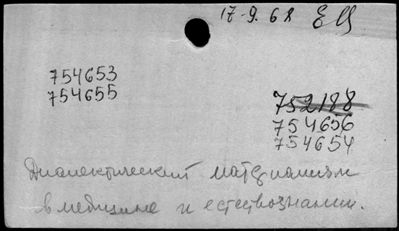 17-9.62 ЕЦ
754653
754655
752188
754656
754654
Диалектический материализм
в медицине и естествознании.